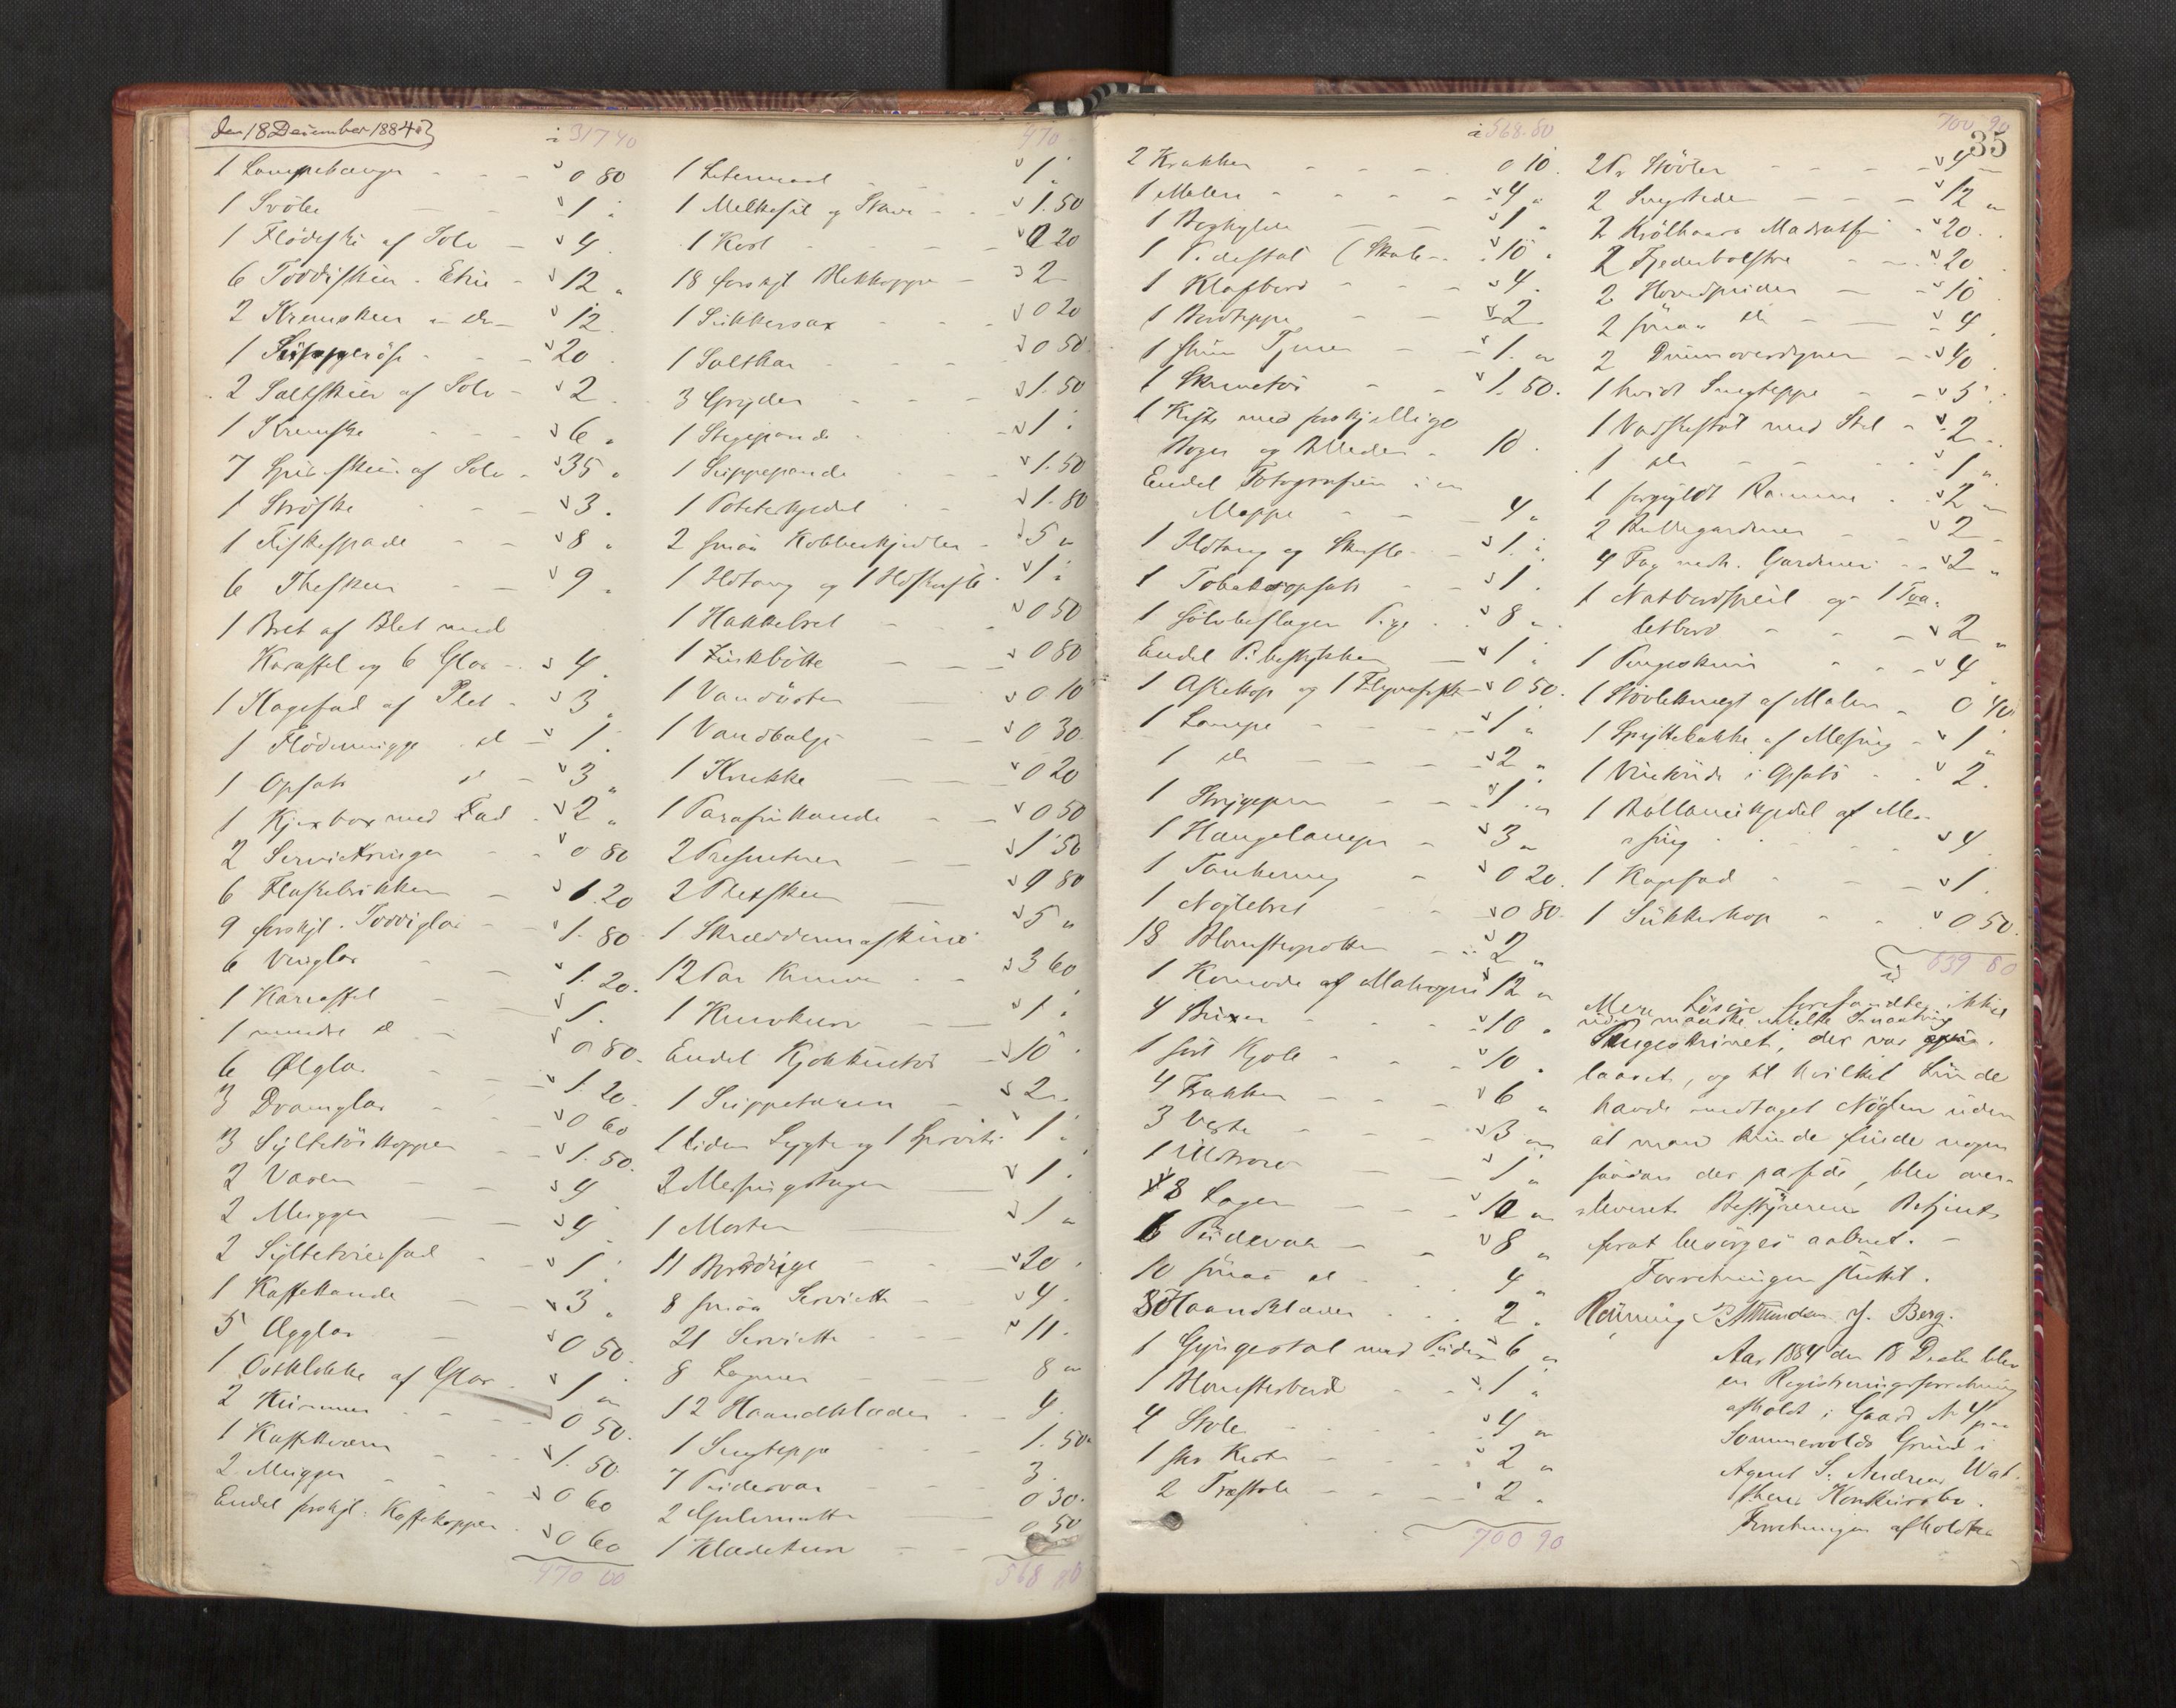 den 18 Decimber 1884
à 317 40
1 Lampehænger - - 0 80
1 Svöbe - - 1 "
1 Flödeske af Sölv - 4
6 Toddiskeer - Etui - 12 "
2 Kremskeer i do - 12
1 Suppeöse - - 20
2 Saltskeer af Sölv - 2
1 Kremske - - 6 "
7 Spiseskeer af Sölv - 35 "
1 Ströske - - 3 "
1 Fiskespade - - 8 "
6 Theskeer - - 9 "
1 Bret af Blek med
Karaffel og 6 Glas - 4
1 Kagefad af Plet - 3 "
1 Flödemugge do - 1 "
1 Opsats do - 3 "
1 Kjexbox med Fad - 2 "
2 Servietringer - - 0 80
6 Flaskebrikker - 1. 20
9 forskjl. Toddiglas - 1. 80
6 Vinglas - - 1. 20.
1 Karaffel - 1.
1 mindre do - 0 80.
6 Ølglas - - 1. 20
3 Dramglas - - 0 60
3 Syltetöikopper - - 1. 50.
2 Vaser - - 4
2 Mugger - - 4
2 Syltetöiesfad - 1 "
1 Kaffekande - - 3 "
5 Ægglas - 0 50.
1 Osteklokke af Glas - 1 "
2 Kummer - - 0 50.
1 Kaffekværn - - 1. 50.
2 Mugger - - 0 60
Endel forskjl. Kaffekopper - 0 60
470 00
470
1 Litermaal - - 1 "
1 Melkesil og - 1. 50
1 Kost - - 0 20
18 forskjl Blekkopper - 2
1 Sukkersax - - 0 20
1 Saltkar - - 0 50
3 Gryder - - 1. 50
1 Stegepande - - 1 "
1 Suppepande - - 1. 50
1 Potetekjedel - - 1. 80
2 smaa Kobberkjedler - 5 "
1 Ildtang og 1 Ildskuffe - 1 "
1 Hakkebret - - 0 50
1 Zinkbötte - - 0 80
1 Vandöse - - 0 10
1 Vandbalje - - 0 30
1 Krukke - - 0 20
1 Parafinkande - - 0 50
2 Presenteer - - 1 50
2 Pletskeer - 0 80
1 Skræddermaskine - 5 "
12 Par Knive - - 3 60
1 Knivkurv - 1 "
Endel Kjökkentöi - 10 "
1 Suppeterin - 2 "
1 liden Lygte og 1 - 1 "
2 Messingstager - 1 "
1 Morter - 1 "
11 Bordduge - - 20 "
8 smaa Servietter - 4 "
21 Servietter - - 11 "
8 Lagener - - 8 "
12 Haandklæder - - 4
1 Sengteppe - - 1. 50
7 Pudevar - 3
2 Gulvmatter - 0 30.
1 Klædekurv - - 0 50
568 80
35
à 568. 80
2 Krukker - - 0 10.
1 Maleri - - 4 "
1 Boghylde - - 1 "
1 Pidestal (Skab - 10 "
1 Klafbord - - 4 "
1 Bordteppe - - 2
1 Tjener - - 1. "
1 Skrivetöi - - 1. 50.
1 Kiste med forskjellige
Böger og Billeder - 10 "
Endel Fotografier i en
Mappe - - 4 "
1 Ildtang og Skuffe - 1. "
1 Tobaksopsats - 1 .
1 sölvbeslagen Pibe - 8 "
Endel Pibestykker - 1 "
1 Askekop og 1 - 0 50.
1 Lampe - - 1 "
1 do - - 2 "
1 - - 1 "
1 Hængelampe - 3 "
1 - 0 20.
1 Nöglebret - - 0 80.
18 Blomsterpotter - 2 "
1 Komode af Mahogni 12 "
4 Buxer - - 10 "
1 sort Kjole - - 10 "
4 Frakker - - 6 "
3 Veste - - 3 "
1 Uldtröie - 1 "
8 Lagen - - 10 "
6 Pudevar - - 8 "
10 smaa do - - 4 "
30 Haandklæder - - 2 "
1 Gyngestol med Puder - 6 "
1 Blomsterbord - - 1 "
4 Stole - - 4 "
1 Kiste - - 2 "
2 Træstole - - 2 "
700 90
700 90
2 Pr Stövler - - 4
2 Sengsteder - - 12 "
2 Krölhaars Madratser - 20 .
2 Fjederbolstre - - 20
2 Hovedpuder - - 10 "
2 smaa do - - 4
2 Dunoverdyner - 40
1 hvidt Sengteppe - 5 "
1 Vadskestol med Stel - 2
1 do - - 1 "
1 forgyldt Ramme - - 2 "
2 Rullegardiner - - 2 "
4 Fag nedh. Gardiner - 2 "
1 Natbordspeil og 1 Toa-
letbord - - 2 "
1 Pengeskrin - - 4 "
1 Stövleknegt af Malm - 0 40
1 Spyttebakke af Messing - 1 "
1 i Opsats - - 2.
1 af Mes-
sing - - 4
1 Kagefad - - 1 .
1 Sukkerkop - - 0 50.
839 80
Mere Lösöre forefandtes ikke
uden maaske enkelte Smaating i
Pengeskrinet, der var
laaset, og til hvilket Lunde
havde medtaget Nöglen uden
at man kunde finde nogen
saadan der passede, blev over-
leveret Bestyrerens Betjent
forat besörges aabnet. -
Forretningen sluttet.
Rönning P. Amundsen J. Berg.
Aar 1884 den 18 Decbr blev
en Registreringsforretning
afholdt i Gaard No 4 paa
Sommervolds Grund i
Agent S. Andreas Wat-
thens Konkursbo.
Forretningen afholdtes